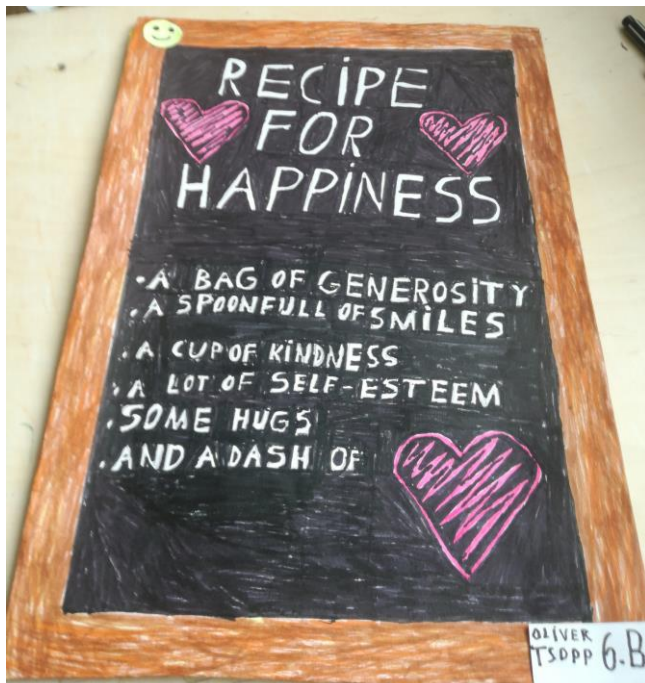 RECiPE
FOR
HAPPiNESS
·A BAG OF GENEROSiTY
·A SPOONFULL OF SMiLES
·A CUP OF KiNDNESS
·A LOT OF SELF-ESTEEM
·SOME HUGS
·AND A DASH OF
OLIVER
TSOPP 6.B